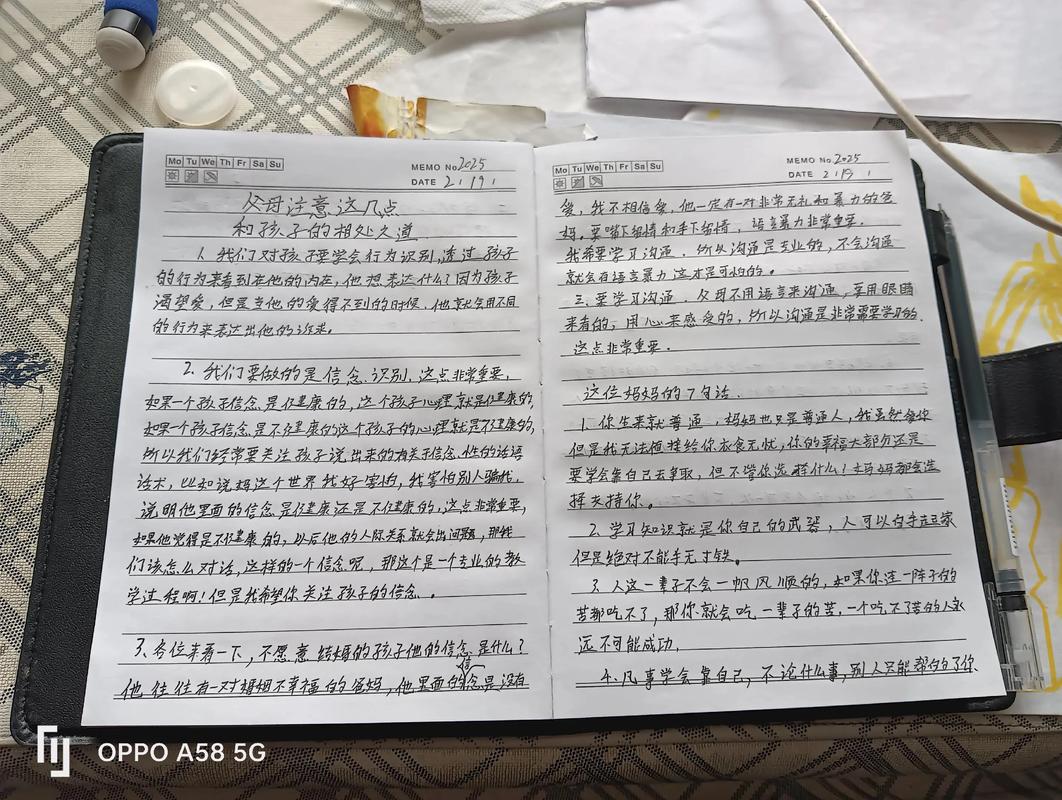 Mo Tu We Th Fr Sa Su
MEMO No. 2025
DATE 2 / 19 /
父母注意这几点
和孩子的相处之道
1. 我们对孩子要学会行为识别,透过孩子
的行为来看到在他的内在,他想表达什么!因为孩子
渴望爱,但是当他的爱得不到的时候,他就会用不同
的行为来表达出他的诉求。
2. 我们要做的是信念识别,这点非常重要,
如果一个孩子信念是健康的,这个孩子心理就是健康的,
如果一个孩子信念是不健康的这个孩子的心理就是不健康的,
所以我们经常要关注孩子说出来的有关于信念性的话语
话术,比如说妈这个世界我好害怕,我害怕别人骗我,
说明他里面的信念是健康还是不健康的,这点非常重要,
如果他觉得是不健康的,以后他的人际关系就会出问题,那我
们该怎么对话,这样的一个信念呢,那这个是一个专业的教
学过程啊!但是我希望你关注孩子的信念。
3、各位来看一下,不愿意结婚的孩子他的信念是什么?
他往往有一对婚姻不幸福的爸妈,他里面的信念是没有
Mo Tu We Th Fr Sa Su
MEMO No. 2025
DATE 2 / 19 /
爱,我不相信爱,他一定有一对非常无礼和暴力的爸
妈,要嘴下留情和手下留情,语言暴力非常重要.
我希望学习沟通,所以沟通是专业的,不会沟通
就会有语言暴力这才是可怕的。
三.要学习沟通,父母不用语言来沟通,要用眼睛
来看的,用心来感受的,所以沟通是非常需要学习的.
这点非常重要.
这位妈妈的7句话.
1.你生来就普通,妈妈也只是普通人,我虽然爱你
但是我无法 给你衣食无忧,你的幸福大部分还是
要学会靠自己去争取,但不管你选择什么!妈妈都会选
择支持你。
2.学习知识就是你自己的武器,人可以白手起家
但是绝对不能手无寸铁。
3.人这一辈子不会一帆风顺的,如果你连一阵子的
苦都吃不了,那你就会吃一辈子的苦,一个吃不了苦的人永
远不可能成功.
4.凡事学会靠自己,不论什么事,别人只能帮的了你
OPPO A58 5G